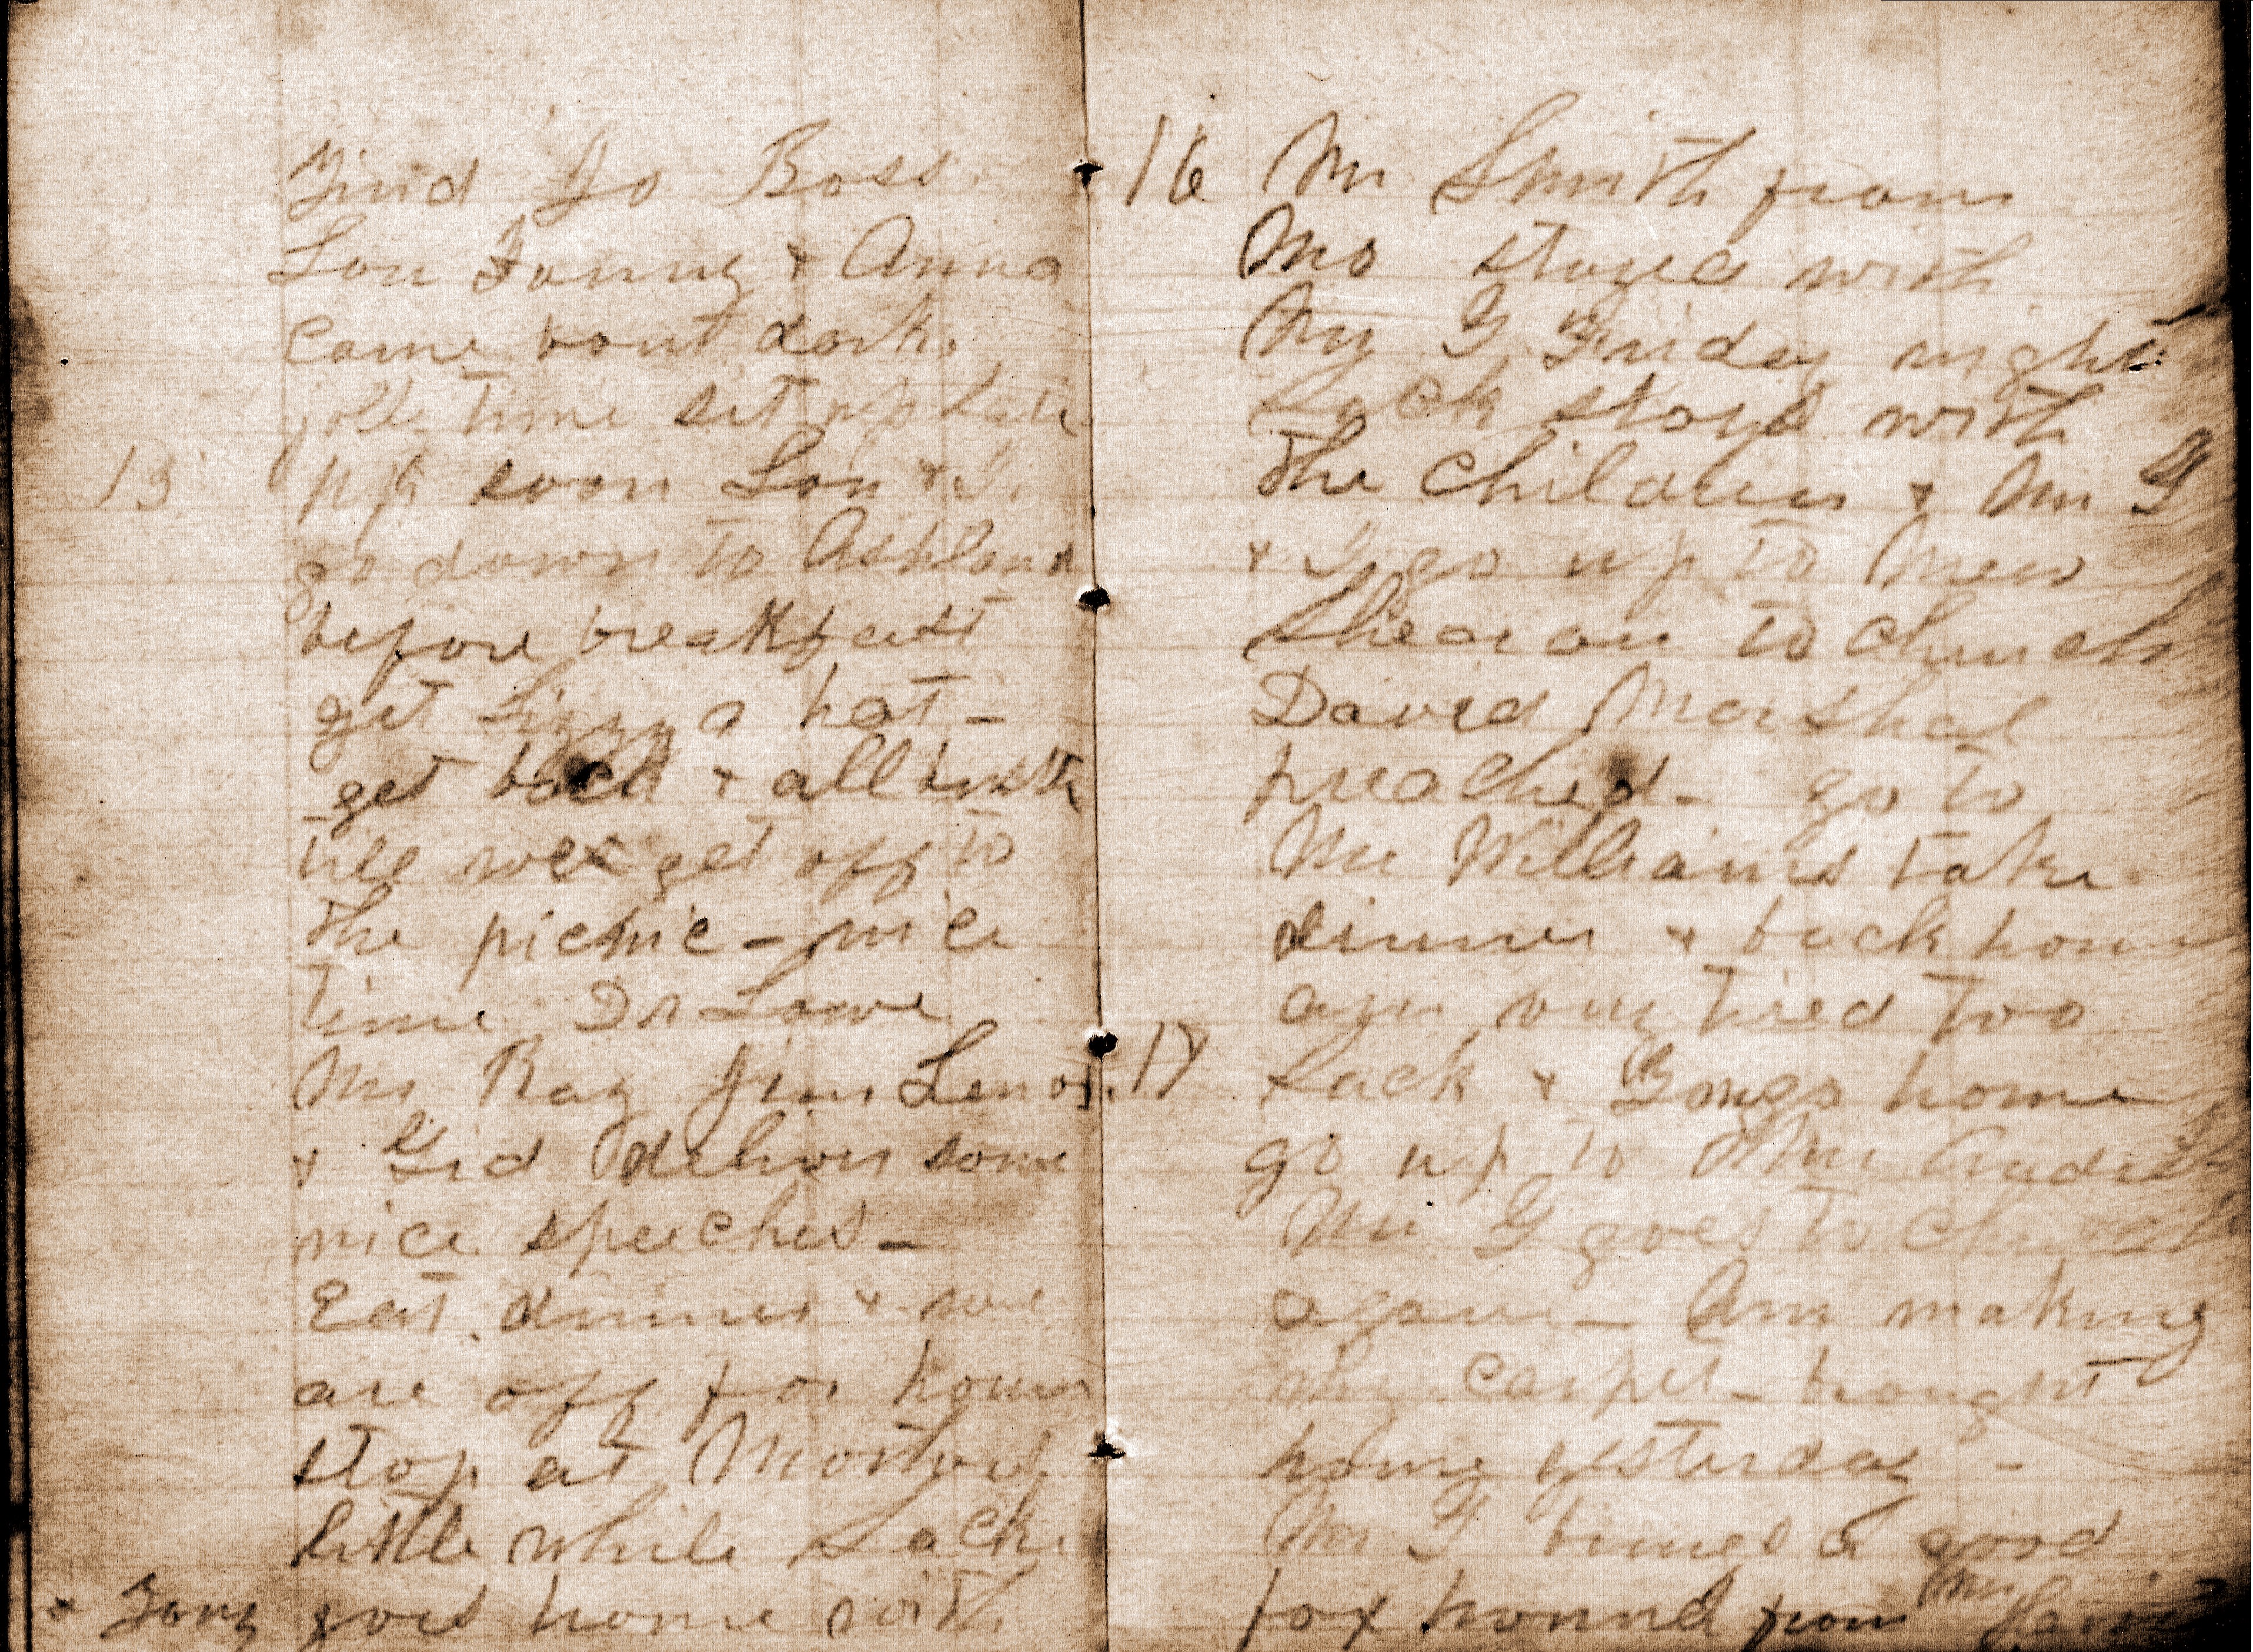 Jo Boss.
Lou Fanny & Anna
came bout dark.
time set up late
15 up soon Lou & I
go down to Ashland
before breakfast
get a hat -
get back & all bustle
till we get off to
the picnic - nice
time Dr Lowe
Mr Ray Jim Lenox
& Gid deliver some
nice speeches -
Eat dinner & we
are off for home
stop at
little while Lack
& Fany goes home with
16 Mr Smith from
Mo stayed with
Mr G Friday night
Lack stays with
the children & Mr G
& I go up to New
Shearon to church
David Marshal
preached - go to
Mr Williams take
dinner & back home
am very tired too
17 Lack & home
go up to Mr
Mr G goes to church
again - Am making
my carpet - brought
home yesterday -
Mr G brings a good
fox hound from Mr